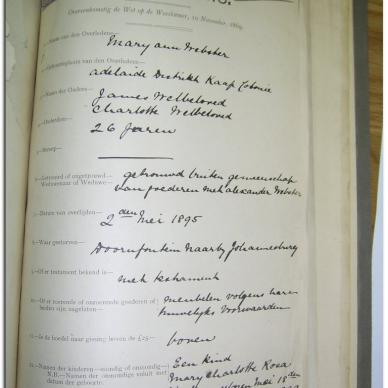 Overeenkomstig de Wet op de Weeskamer, 12 November, 1869.
1.—Naam van den Overledene—
Mary ann Webster
2.—Geboorteplaats van den Overledene—
adelaide Distrikt Kaap Colonie
3.—Namen der Ouders—
James Welbeloved
Charlotte Welbeloved
4.—Ouderdom—
26 Jaren
5.—Beroep—
6.—Getrouwd of ongetrouwd—
Weduwnaar of Weduwe—
getrouwd buiten gemeenschap
van goederen met alexander Webster
7.—Datum van overlijden—
2den Mei 1895
8.—Waar gestorven—
Doornfontein naarby Johannesburg
9.—Of er testament bekend is—
met testament
10.—Of er roerende of onroerende goederen of
bezitting zijn nagelaten—
meubelen volgens hare
huwelijks Voorwaarden
11.—Is de boedel naar gissing boven de £25—
boven
12.—Namen der kinderen—mondig of onmondig—
N.B.—Namen der onmondige voluit met
datum der geboorte.
Een kind
Mary Charlotte Rosa
geboren Mei 18den